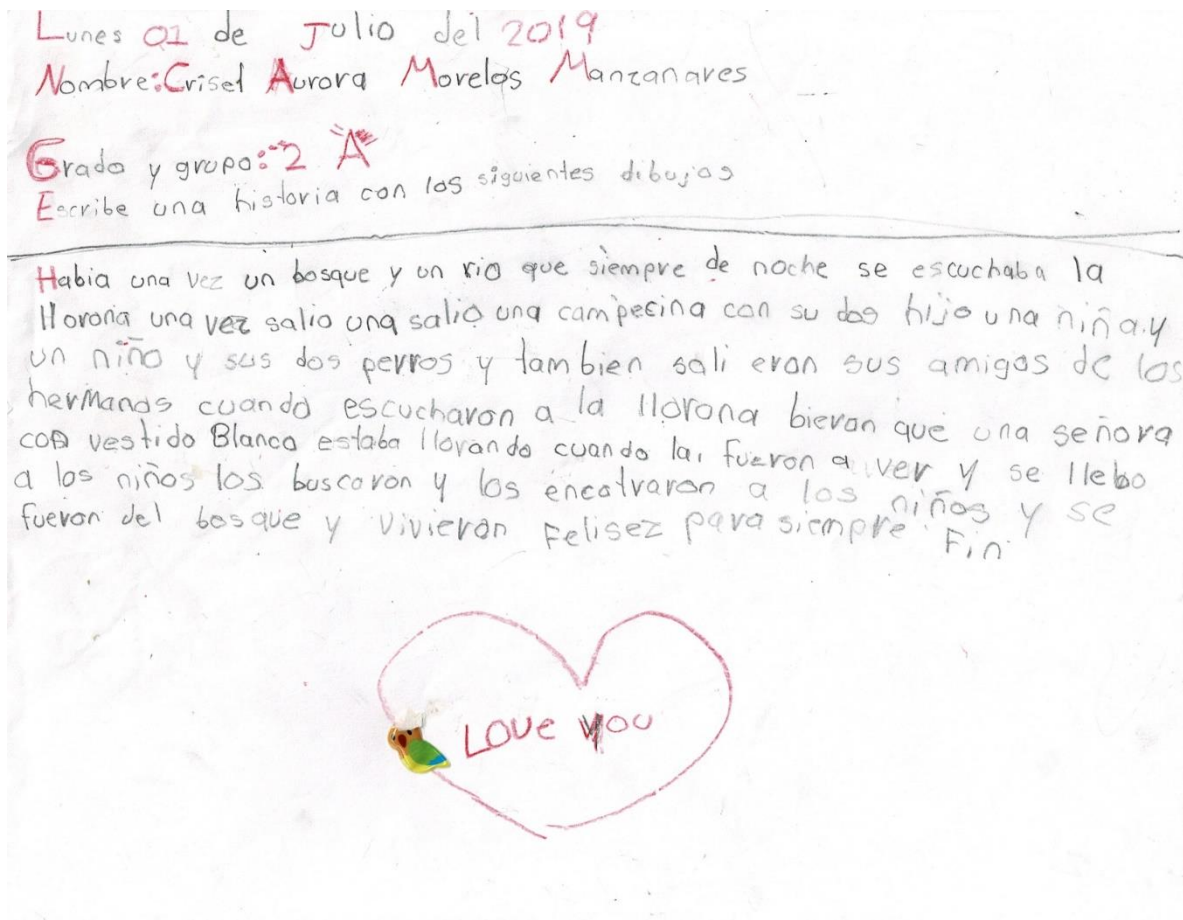 Lunes 01 de Julio del 2019
Nombre: Crisel Aurora Morelos Manzanares
Grado y grupo: "2 "A"
Escribe una historia con los siguientes dibujos
Habia una vez un bosque y un rio que siempre de noche se escuchaba la
llorona una vez salio una salio una campecina con su dos hijo una niña y
un niño y sus dos perros y tambien sali eron sus amigos de los
hermanos cuando escucharon a la llorona bieron que una señora
con vestido Blanco estaba llorando cuando la fueron a ver y se llebo
a los niños los buscaron y los encotraron a los niños y se
fueron del bosque y vivieron Felisez para siempre Fin.
LOVE YOU